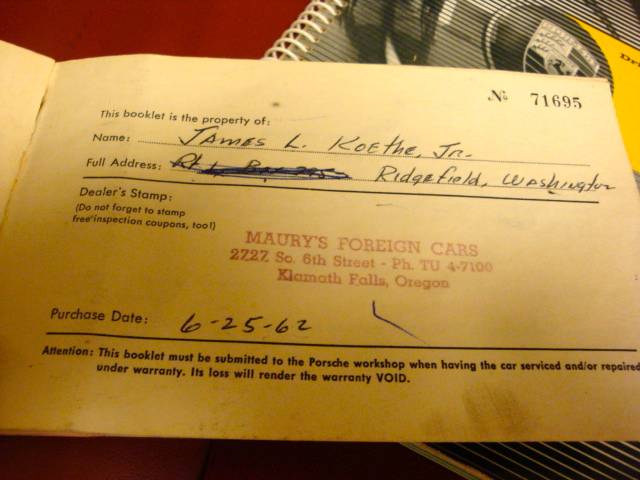 Nº 71695
This booklet is the property of:
Name: James L. Koethe, Jr.
Full Address: Ridgefield, Washington
Dealer's Stamp:
(Do not forget to stamp
free inspection coupons, too!)
MAURY'S FOREIGN CARS
2727 So. 6th Street - Ph. TU 4-7100
Klamath Falls, Oregon
Purchase Date: 6-25-62
Attention: This booklet must be submitted to the Porsche workshop when having the car serviced and/or repaired
under warranty. Its loss will render the warranty VOID.